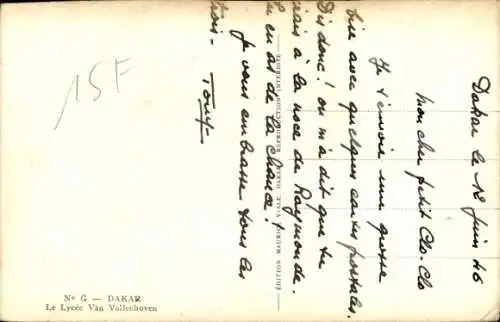 Dakar le 18 Juin 46
Mon cher petit Clo-Clo
Je t'envoie une grosse
bise avec quelques cartes postales.
Dis donc! on m'a dit que tu
étais à la noce de Raymonde.
Tu en as de la chance!
Je vous embrasse tous les
trois-
Tony-
15F
ÉDITION MAURICE VIALE DAKAR - REPRODUCTION INTERDITE
N° G — DAKAR
Le Lycée Van Vollenhoven